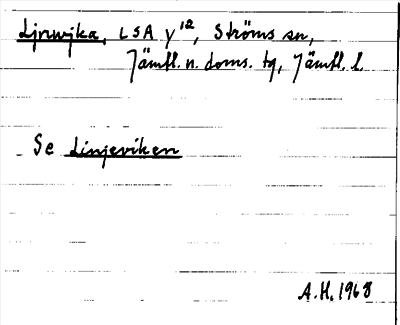 Ljnwjka, LSA y¹², Ströms sn,
Jämtl. n. doms. tg, Jämtl. l.
Se Linjeviken
A.H. 1968